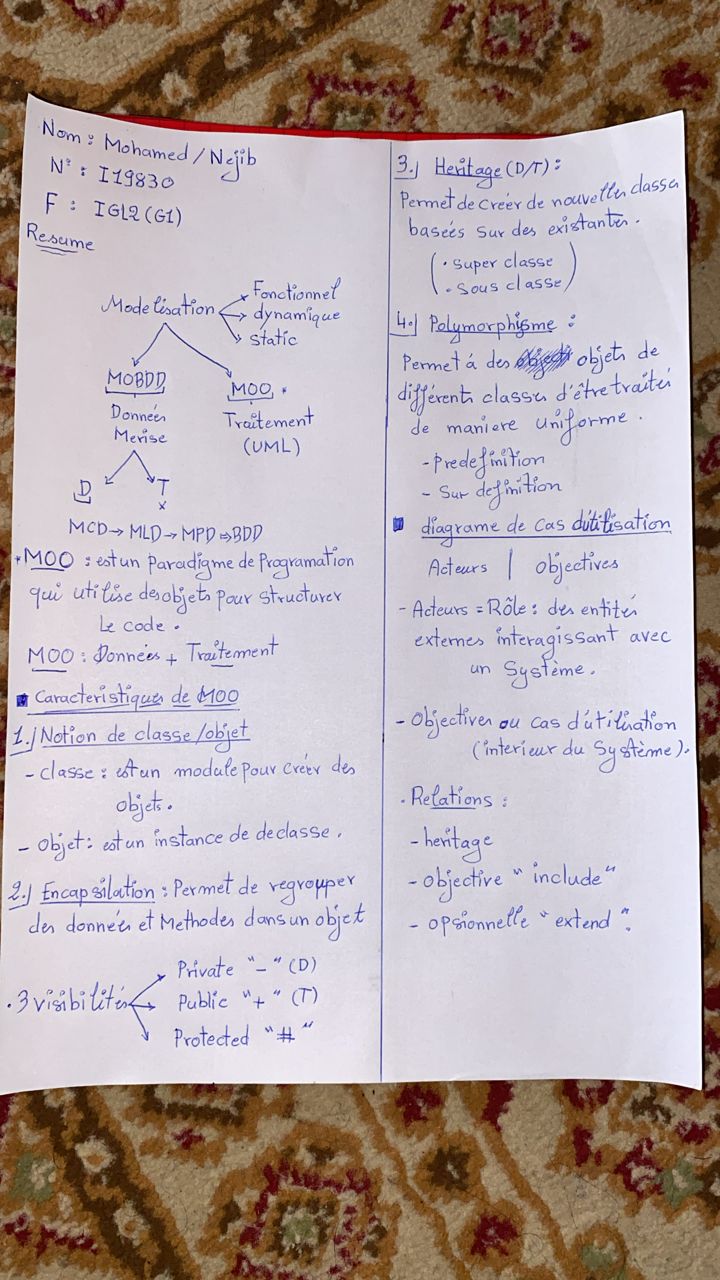 Nom : Mohamed / Nejib
N° : I19830
F : IGL2 (G1)
Resume
Modelisation
Fonctionnel
dynamique
static
MOBDD
Données
Merise
MOO *
Traitement
(UML)
D
T
x
MCD → MLD → MPD ⇒ BDD
* MOO : est un Paradigme de Programation
qui utilise des objets pour structurer
Le code .
MOO : Données + Traitement
Caracteristiques de MOO
1.) Notion de classe / objet
- classe : est un module pour créer des
objets .
- Objet : est un instance de declasse .
2.) Encapsilation : Permet de regrouper
des données et Methodes dans un objet
. 3 visibilités
Private "-" (D)
Public "+" (T)
Protected "#"
3.) Heritage (D/T) :
Permet de créer de nouvelles classes
baseés sur des existantes .
( . super classe
. sous classe )
4.) Polymorphisme :
Permet á des objets de
différents classes d'être traités
de maniere uniforme .
- Predefinition
- Sur definition
diagrame de cas d'utilisation
Acteurs | objectives
- Acteurs = Rôle : des entités
externes interagissant avec
un Système .
- Objectives ou cas d'utilisation
(interieur du Système).
. Relations :
- heritage
- objective " include "
- opsionnelle " extend " .